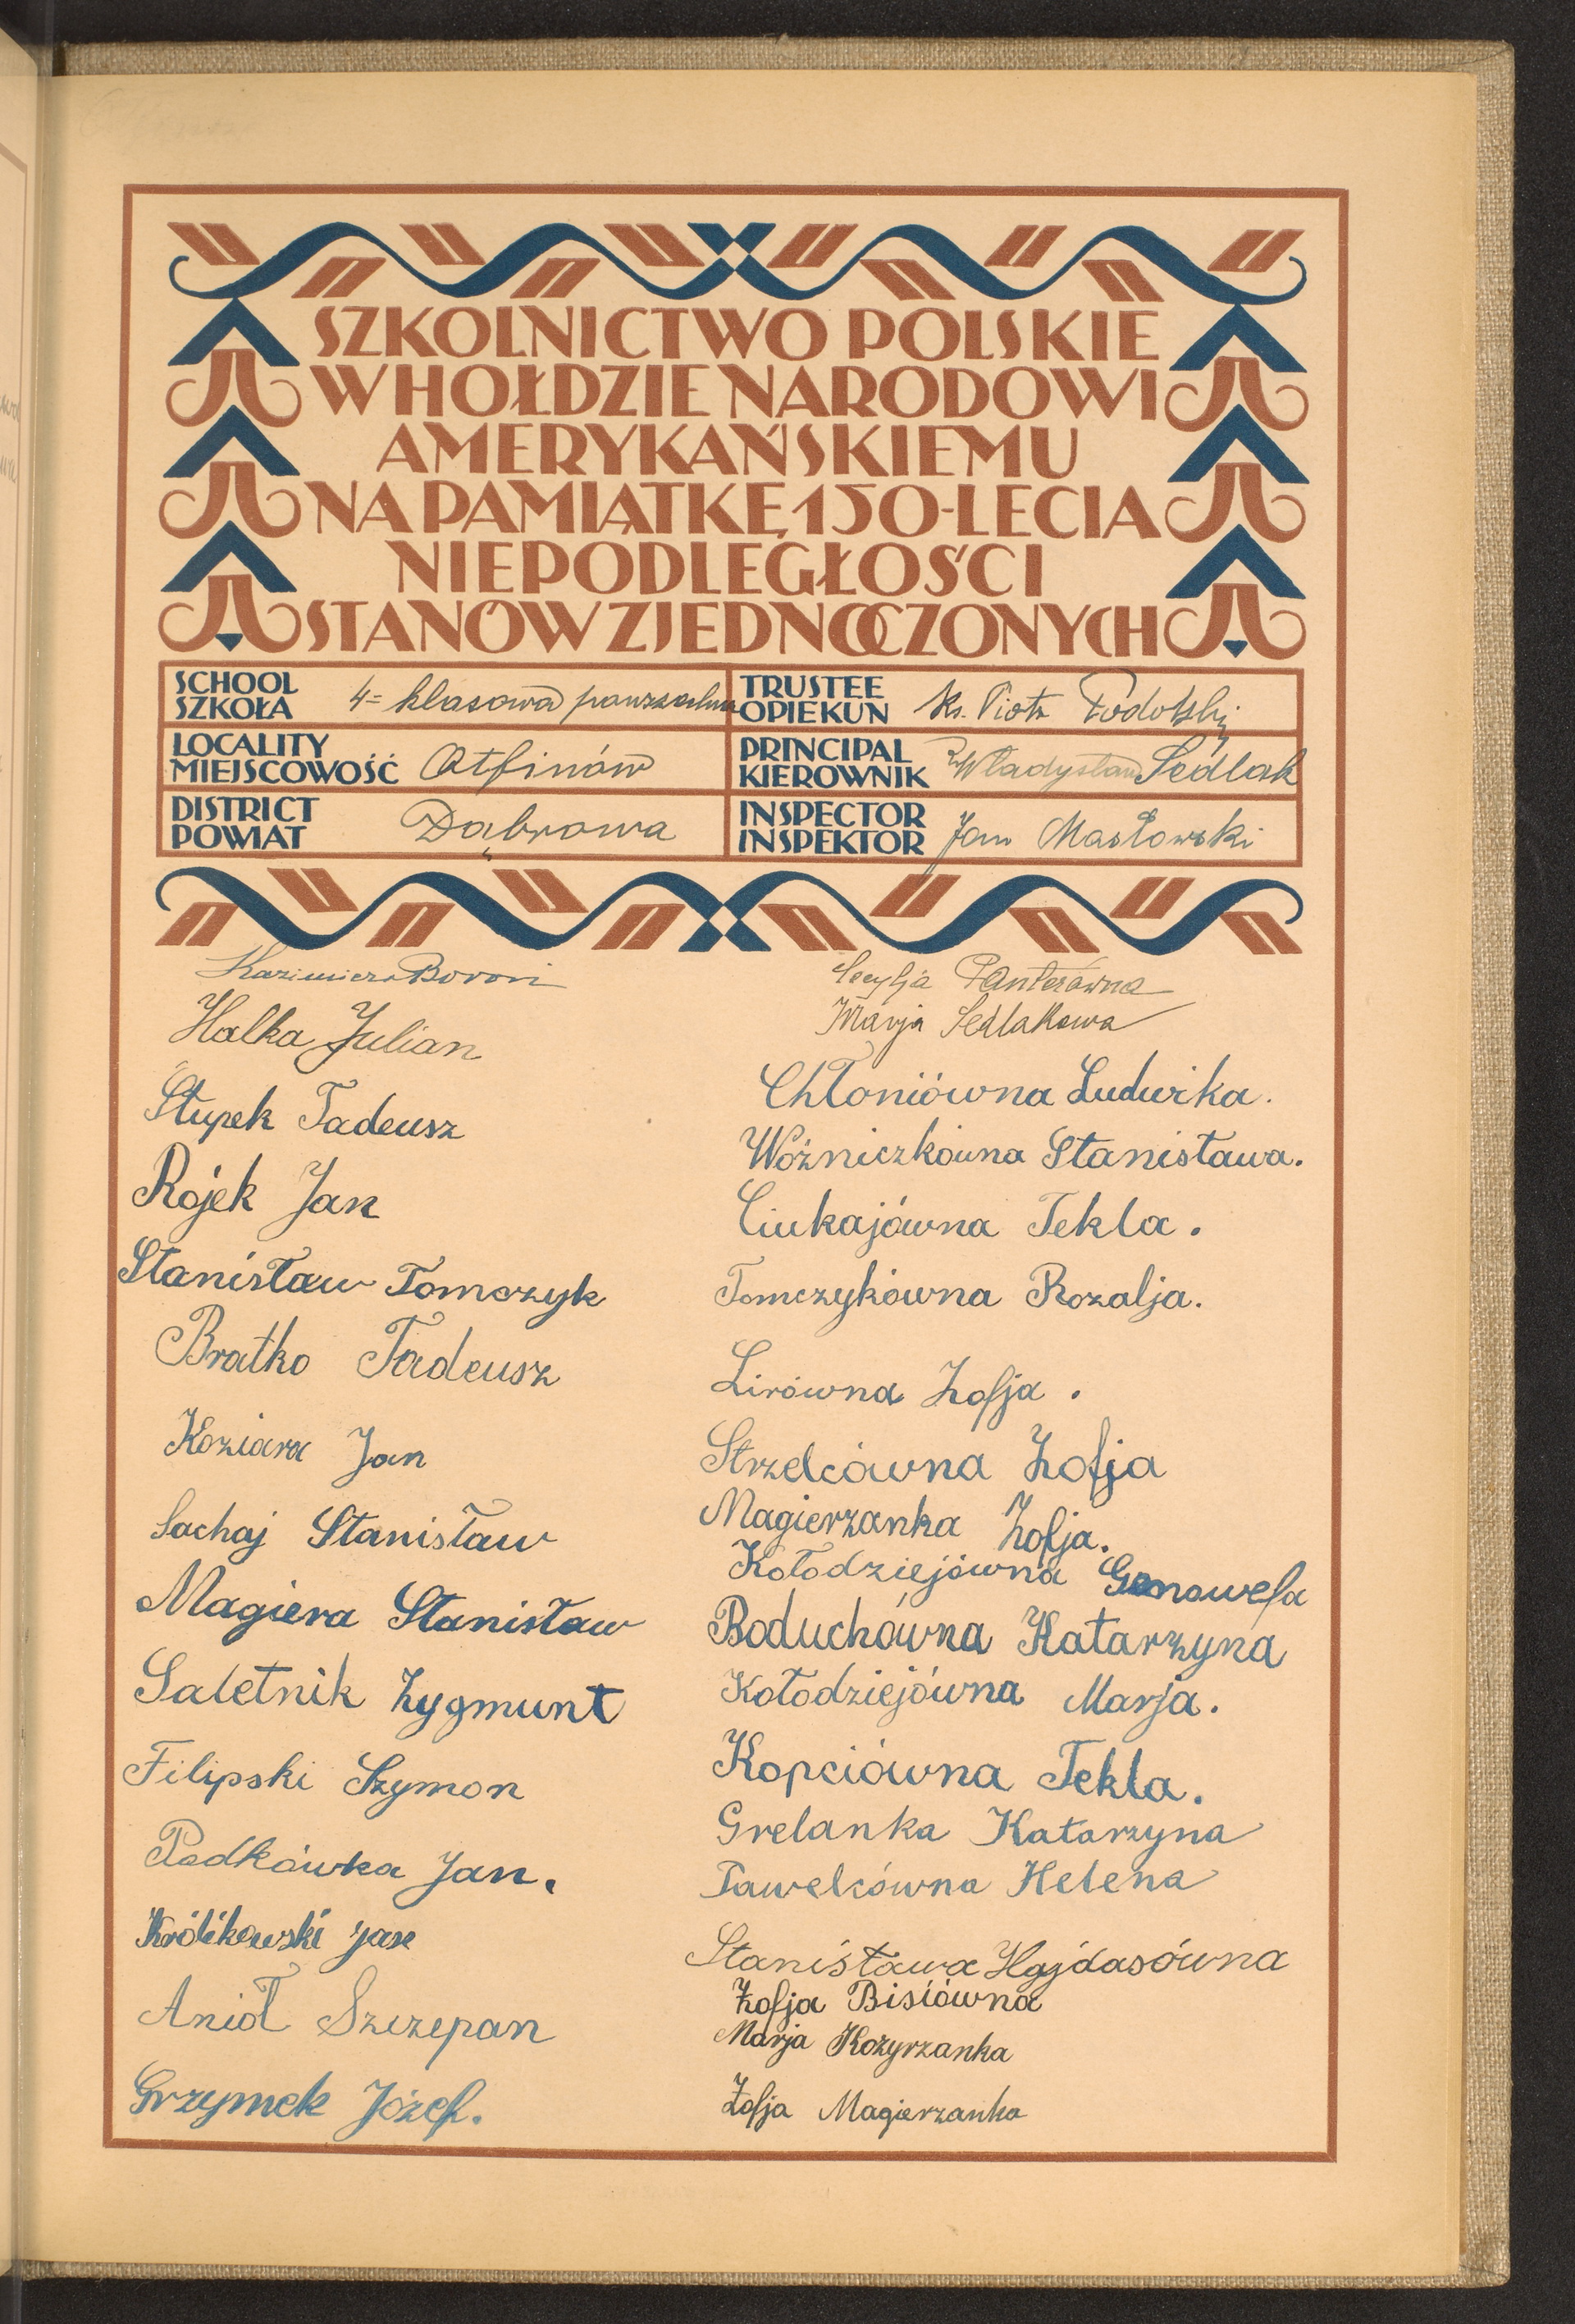 SZKOLNICTWO POLSKIE
W HOŁDZIE NARODOWI
AMERYKAŃSKIEMU
NA PAMIĄTKĘ 150-LECIA
NIEPODLEGŁOŚCI
STANÓW ZJEDNOCZONYCH
SCHOOL
SZKOŁA
4= klasowa powszechna
TRUSTEE
OPIEKUN
Ks. Piotr Podolski
LOCALITY
MIEJSCOWOŚĆ
Otfinów
PRINCIPAL
KIEROWNIK
Władysław Sedlak
DISTRICT
POWIAT
Dąbrowa
INSPECTOR
INSPEKTOR
Jan Masłowski
Kazimierz Boroń
Halka Julian
Słupek Tadeusz
Rojek Jan
Stanisław Tomczyk
Bratko Tadeusz
Koziara Jan
Sachaj Stanisław
Magiera Stanisław
Saletnik Zygmunt
Filipski Szymon
Podkówka Jan.
Królikowski Jan
Anioł Szczepan
Grzymek Józef.
Cecylja Panterówna
Marja Sedlakowa
Chłoniówna Ludwika.
Woźniczkówna Stanisława.
Ciukajówna Tekla.
Tomczykówna Rozalja.
Lirówna Zofja.
Strzelcówna Zofja
Magierzanka Zofja.
Kołodziejówna Genowefa
Boduchówna Katarzyna
Kołodziejówna Marja.
Kopciówna Tekla.
Grelanka Katarzyna
Pawelcówna Helena
Stanisława Hajdasówna
Zofja Bisiówna
Marja Kozyrzanka
Zofja Magierzanka